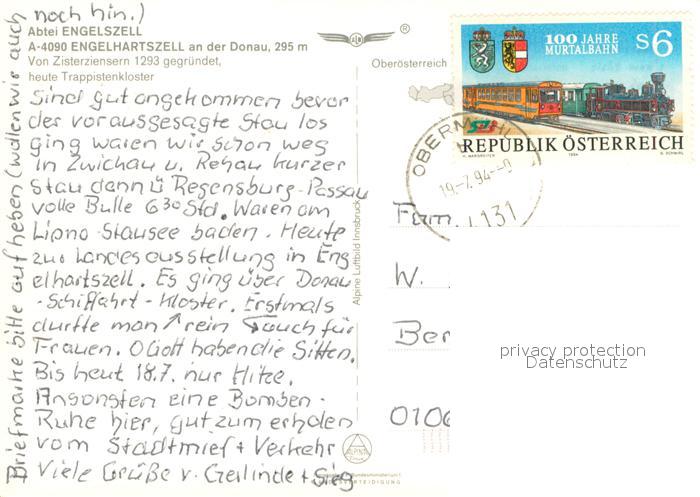 Abtei ENGELSZELL
A-4090 ENGELHARTSZELL an der Donau, 295 m
Von Zisterziensern 1293 gegründet,
heute Trappistenkloster
Oberösterreich
®
Sind gut angekommen bevor
der vorausgesagte Stau los
ging waren wir schon weg
in Zwickau u. Rehau kurzer
Stau dann ü Regensburg-Passau
volle Bulle 6 30 Std. Waren am
Lipno-Stausee baden. Heute
zur Landesausstellung in Eng
elhartszell. Es ging über Donau
-Schiffahrt-Kloster. Erstmals
durfte man ↗ rein Auch für
Frauen. O Gott haben die Sitten.
Bis heut 18.7. nur Hitze.
Ansonsten eine Bomben-
Ruhe hier, gut zum erholen
vom Stadtmief + Verkehr
Viele Grüße v. Gerlinde + Sieg
Briefmarke bitte aufheben (wollen wir auch
noch hin.)
Alpine Luftbild Innsbruck
ALPINE
100 JAHRE
MURTALBAHN
S6
REPUBLIK ÖSTERREICH
H. MARGREITER 1994
19.-7.94-9
4131
Fam.
W.
Ber
0106
privacy protection
Datenschutz